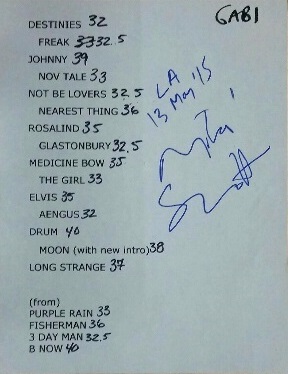 GABI
DESTINIES 32
FREAK 33 32.5
JOHNNY 39
NOV TALE 33
NOT BE LOVERS 32.5
NEAREST THING 36
ROSALIND 35
GLASTONBURY 32.5
MEDICINE BOW 35
THE GIRL 33
ELVIS 35
AENGUS 32
DRUM 40
MOON (with new intro) 38
LONG STRANGE 37
(from)
PURPLE RAIN 33
FISHERMAN 36
3 DAY MAN 32.5
B NOW 40
LA
13 May '15
Mike
Scott